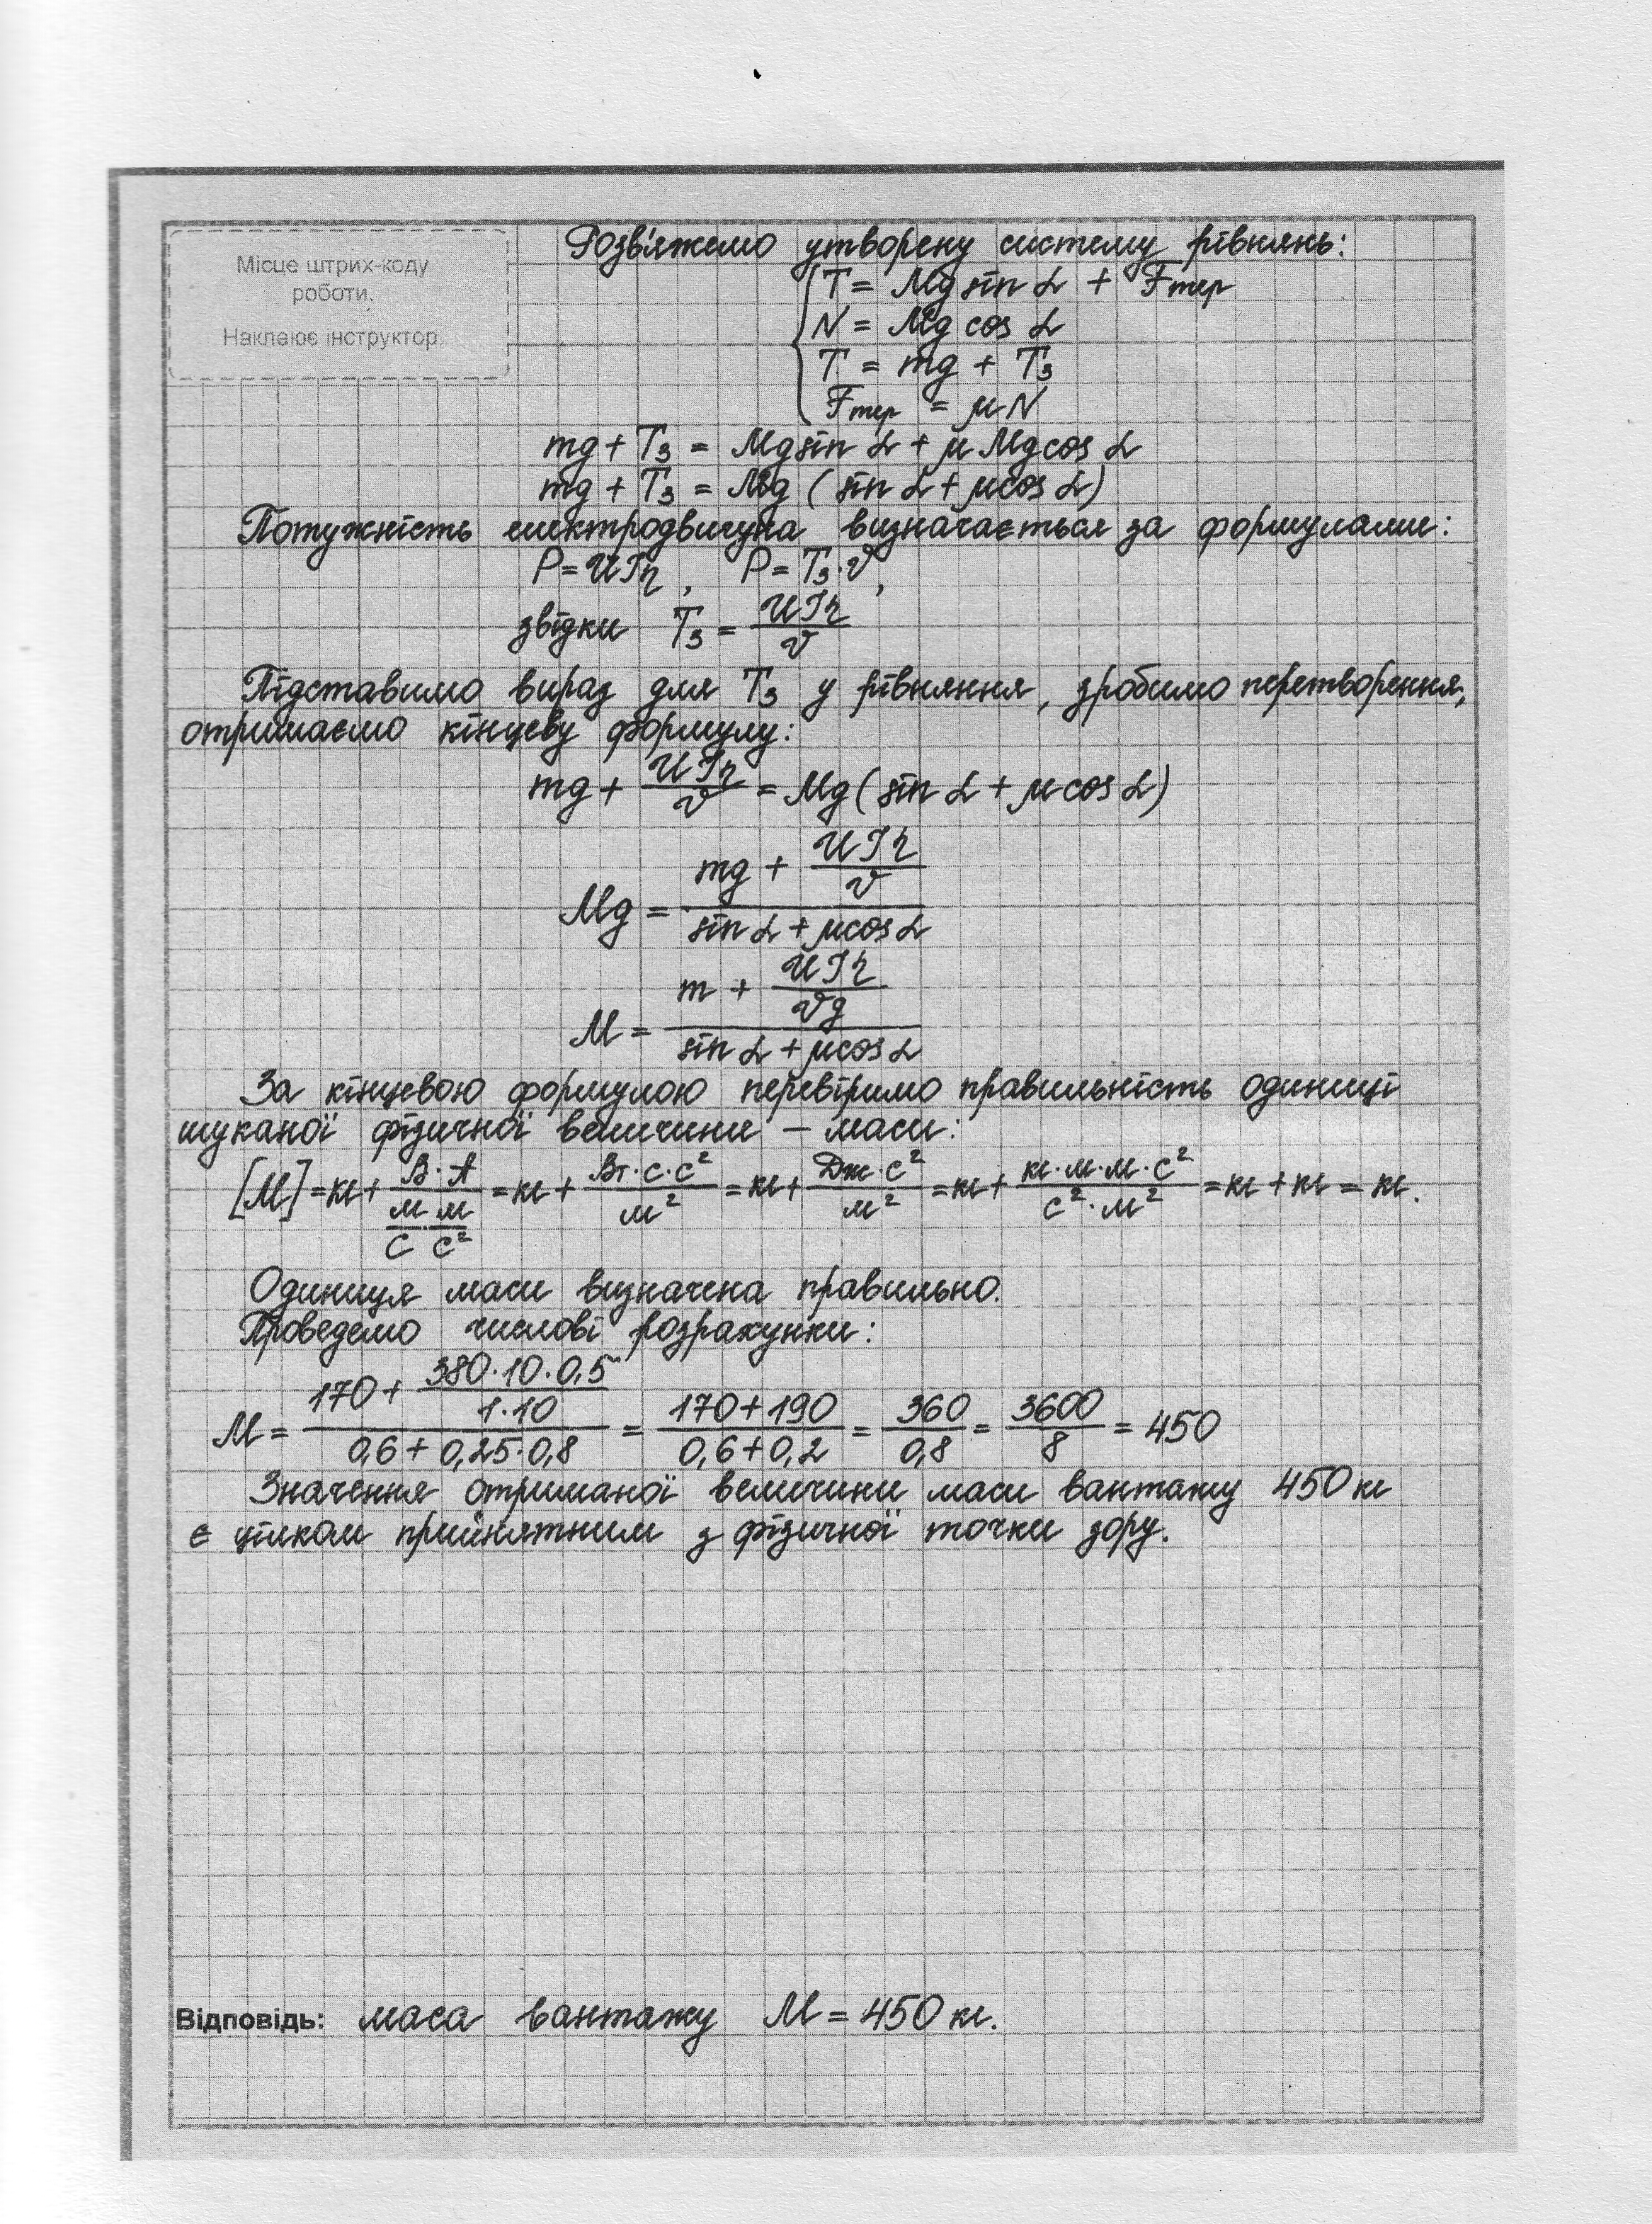 Місце штрих-коду
роботи.
Наклеює інструктор.
Розв'яжемо утворену систему рівнянь:
T = Mg sin α + Fтер
N = Mg cos α
T = mg + T₃
Fтер = μN
mg + T₃ = Mg sin α + μ Mg cos α
mg + T₃ = Mg (sin α + μ cos α)
Потужність електродвигуна визначається за формулами:
P = UIη, P = T₃·v,
звідки T₃ = UIη / v
Підставимо вираз для T₃ у рівняння, зробимо перетворення,
отримаємо кінцеву формулу:
mg + UIη / v = Mg (sin α + μ cos α)
Mg = (mg + UIη / v) / (sin α + μ cos α)
M = (m + UIη / vg) / (sin α + μ cos α)
За кінцевою формулою перевіримо правильність одиниці
шуканої фізичної величини – маси:
[M] = кг + В·А / (м/с · м/с²) = кг + Вт·с·с² / м² = кг + Дж·с² / м² = кг + кг·м·м·с² / с²·м² = кг + кг = кг.
Одиниця маси визначена правильно.
Проведемо числові розрахунки:
M = (170 + 380·10·0,5 / 1·10) / (0,6 + 0,25·0,8) = (170 + 190) / (0,6 + 0,2) = 360 / 0,8 = 3600 / 8 = 450
Значення отриманої величини маси вантажу 450 кг
є цілком прийнятним з фізичної точки зору.
Відповідь: маса вантажу M = 450 кг.